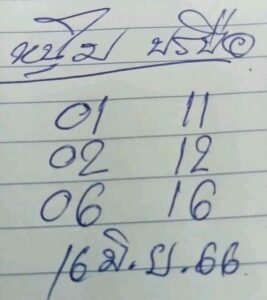 หนุ่ม
01 11
02 12
06 16
16 มิ.ย.66